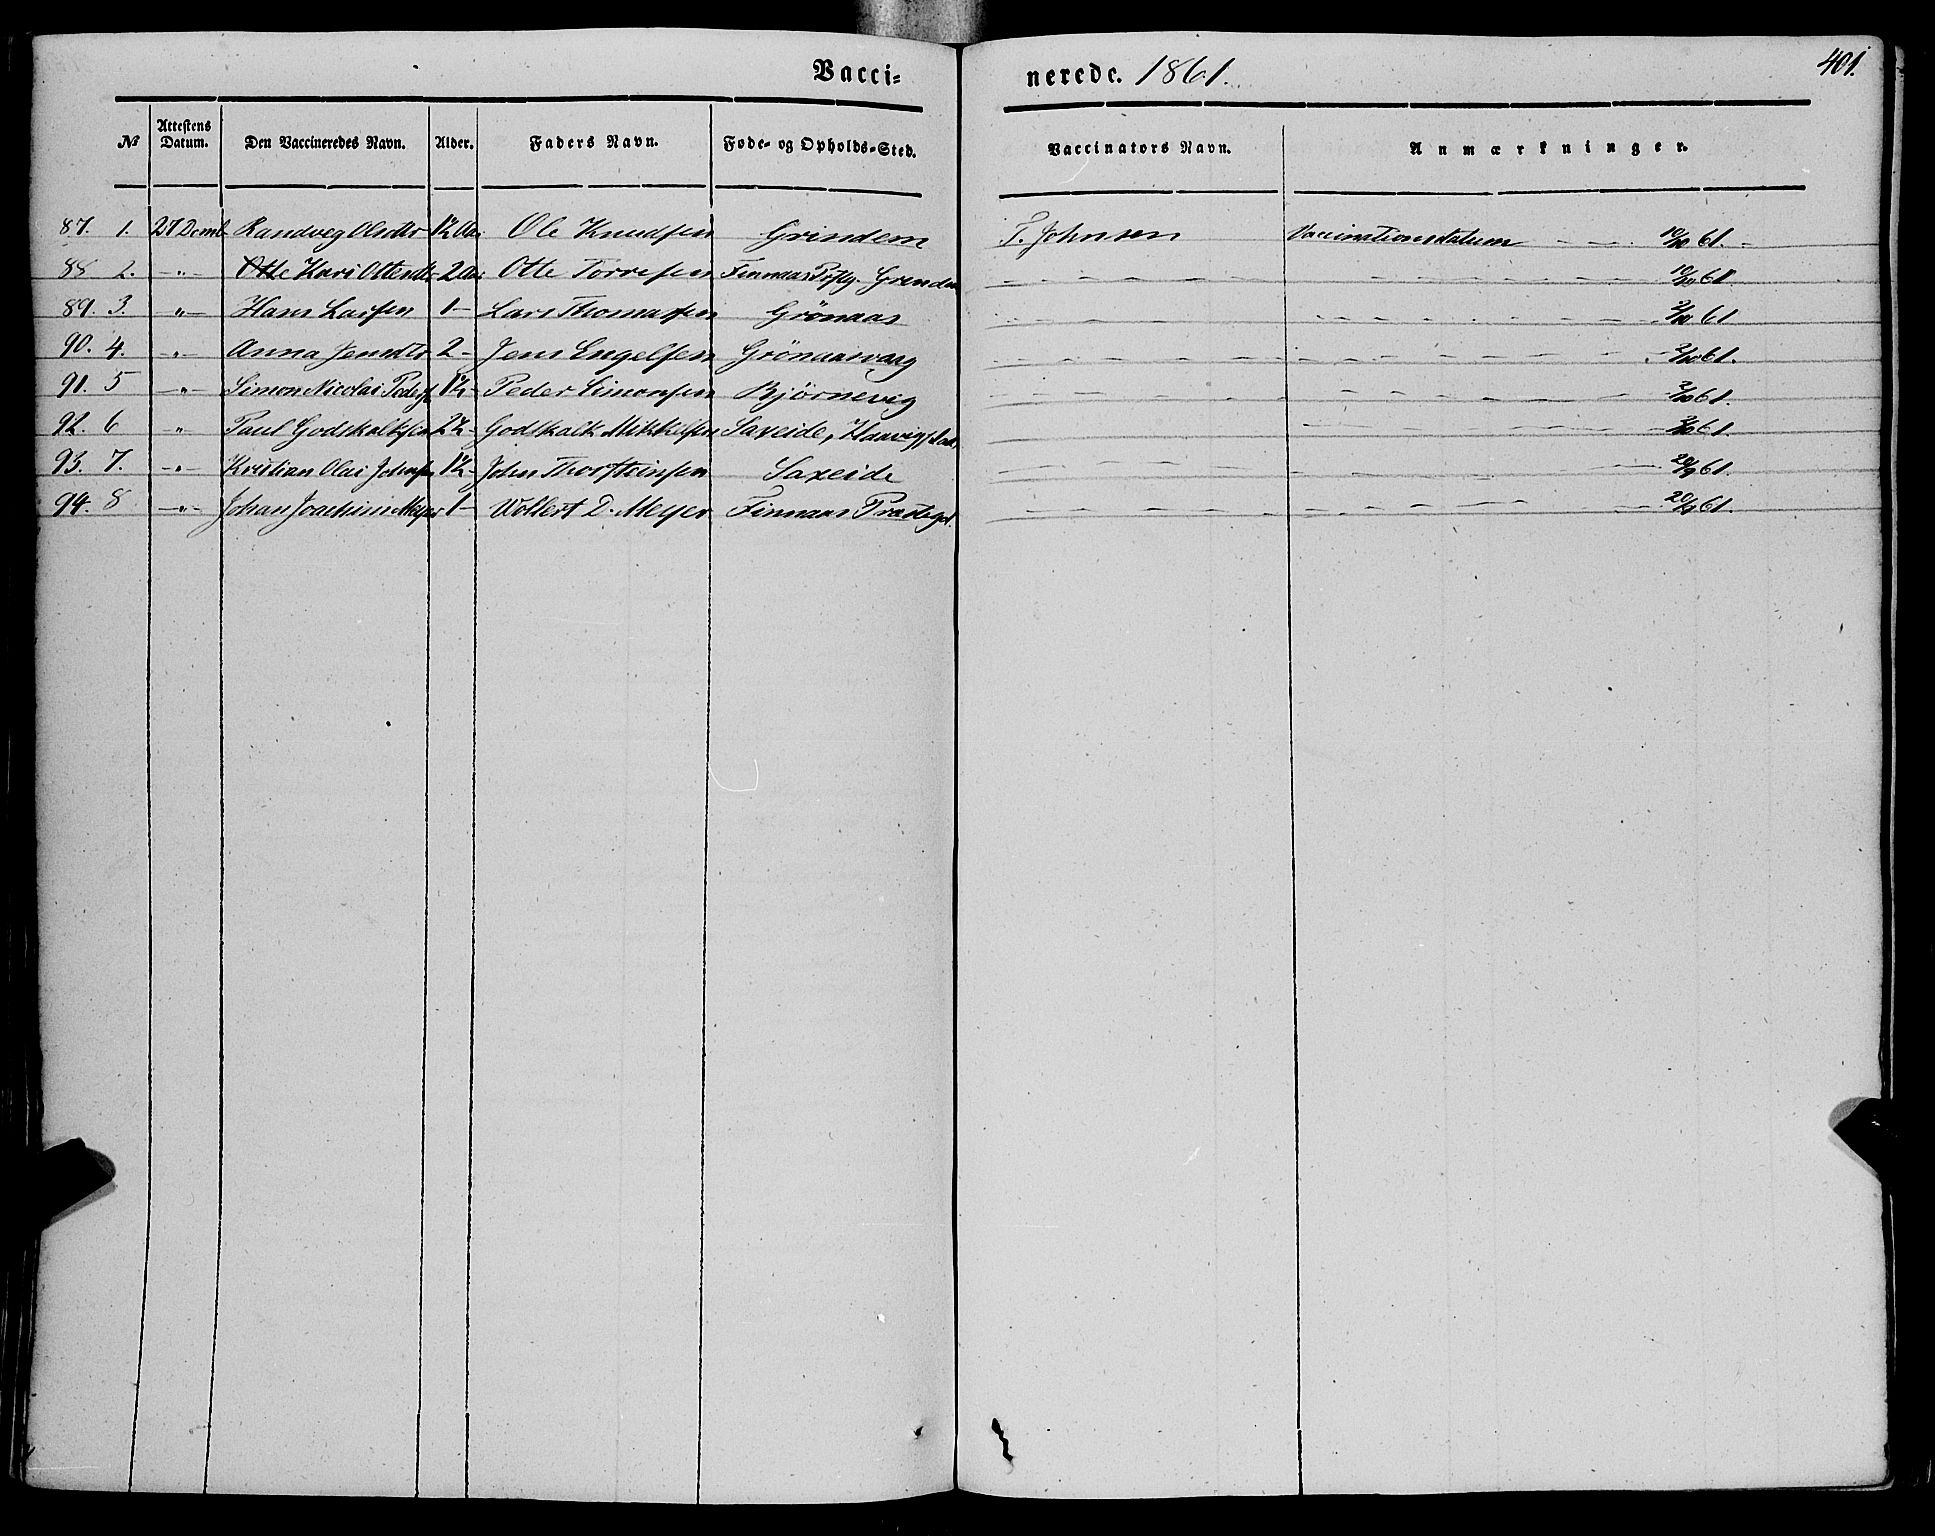 Vacci= nerede. 1861. 401.
№ Attestens Datum. Den Vaccineredes Navn. Alder. Faders Navn. Føde- og Opholds-Sted. Vaccinators Navn. Anmærkninger.
87. 1. 27 Decmb Randveg Olsdtr 1½ Aar Ole Knudsen Grindem T. Johnsen Vaccinationsdatum - - - 10/10 61. -
88 2. -"- Otte Kari Ottesdtr 2 Aar Otte Torresen Finnaas Prstg. Grindem - - - 10/10 61
89. 3. -"- Hans Larsen 1 - Lars Thomassen Grönaas - - - 3/10 61
90. 4. -"- Anna Jensdtr 2 - Jens Engelsen Grönaasvaag - - - 3/10 61.
91. 5 -"- Simon Nicolai Peders 1½ - Peder Simonsen Björneveg - - - 3/10 61.
92. 6 " Paul Godskalksen 2½ - Godskalk Mikkelsen Saxeide, Haavig - - - 3/10 61.
93. 7. -"- Kristian Olai Johnsen 1½ - John Thorsteinsen Saxeide - - - 20/9 61.
94. 8 -"- Johan Joachim Meyer 1 - Wollert D. Meyer Finnaas Præstegd. - - - 20/9 61.